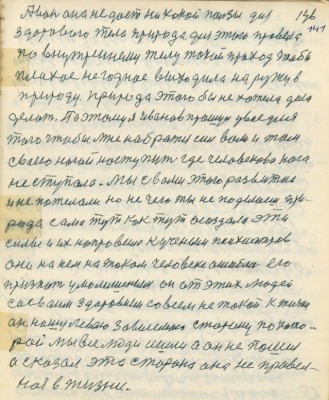 А нам она не дает никакой пользы для 146
здорового тела природа для этого провела 141
по внутреннему телу такой проход чтобы
плохое негодное выходила на ружу в
природу. Природа этого бы не хотела дела
делать. Поэтому я Иванов прошу
того чтобы мне набраться сил вам и там
своею ногой наступит где человекова нога
не ступала. Мы с вами этого развития
и не хотели но не чего ты не поделаеш при-
рода сама тут как тут создала эти
силы и их направила к ученым психиатров
они на нем на таком человеке ошибли его
признают умолишиным он от этих людей
своим здоровием совсем не такой к тому
он нашу леваю зависемаю сторону по кото-
рой мы все люди шли а он не пошел
а сказал эта сторона она не правел-
ная в жизни.